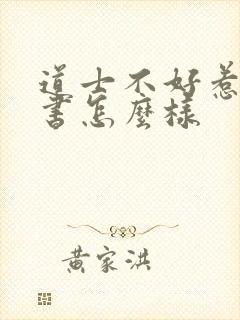 道士不好惹
書怎麼樣
黃家洪